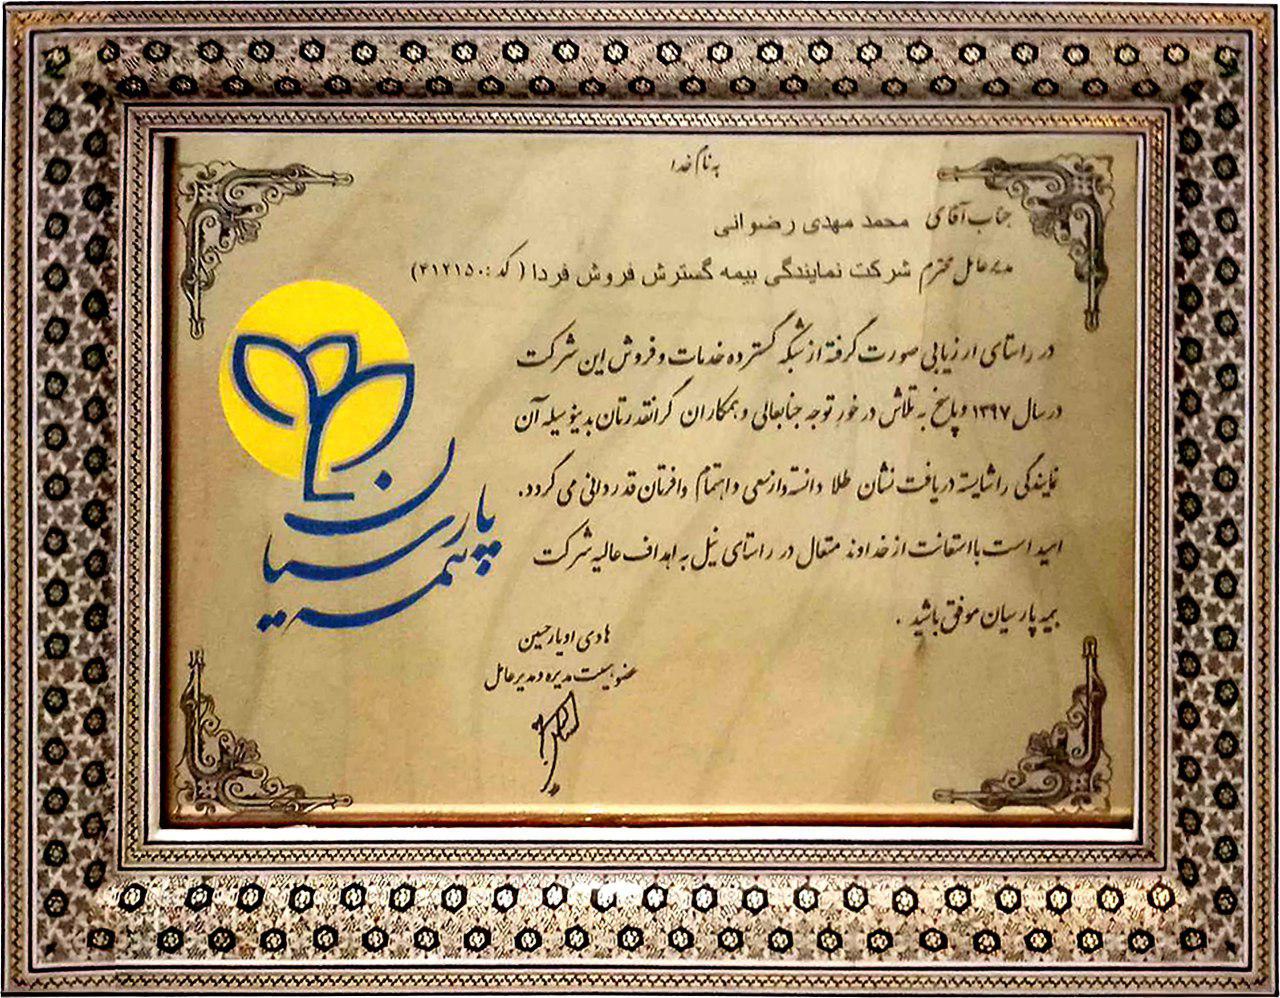 به نام خدا
جناب آقای محمد مهدی رضوانی
مدیرعامل محترم شرکت نمایندگی بیمه گسترش فروش فردا ( کد :۴۱۲۱۵۰)
در راستای ارزیابی صورت گرفته از شبکه گسترده خدمات و فروش این شرکت
در سال ۱۳۹۷ و پاسخ به تلاش در خور توجه جنابعالی و همکاران گرانقدرتان بدینوسیله آن
نمایندگی را شایسته دریافت نشان طلا دانسته و از سعی و اهتمام وافرتان قدردانی می گردد.
امید است با استعانت از خداوند متعال در راستای نیل به اهداف عالیه شرکت
بیمه پارسیان موفق باشید .
هادی اویارحسین
عضو هیئت مدیره و مدیرعامل
بیمه پارسیان